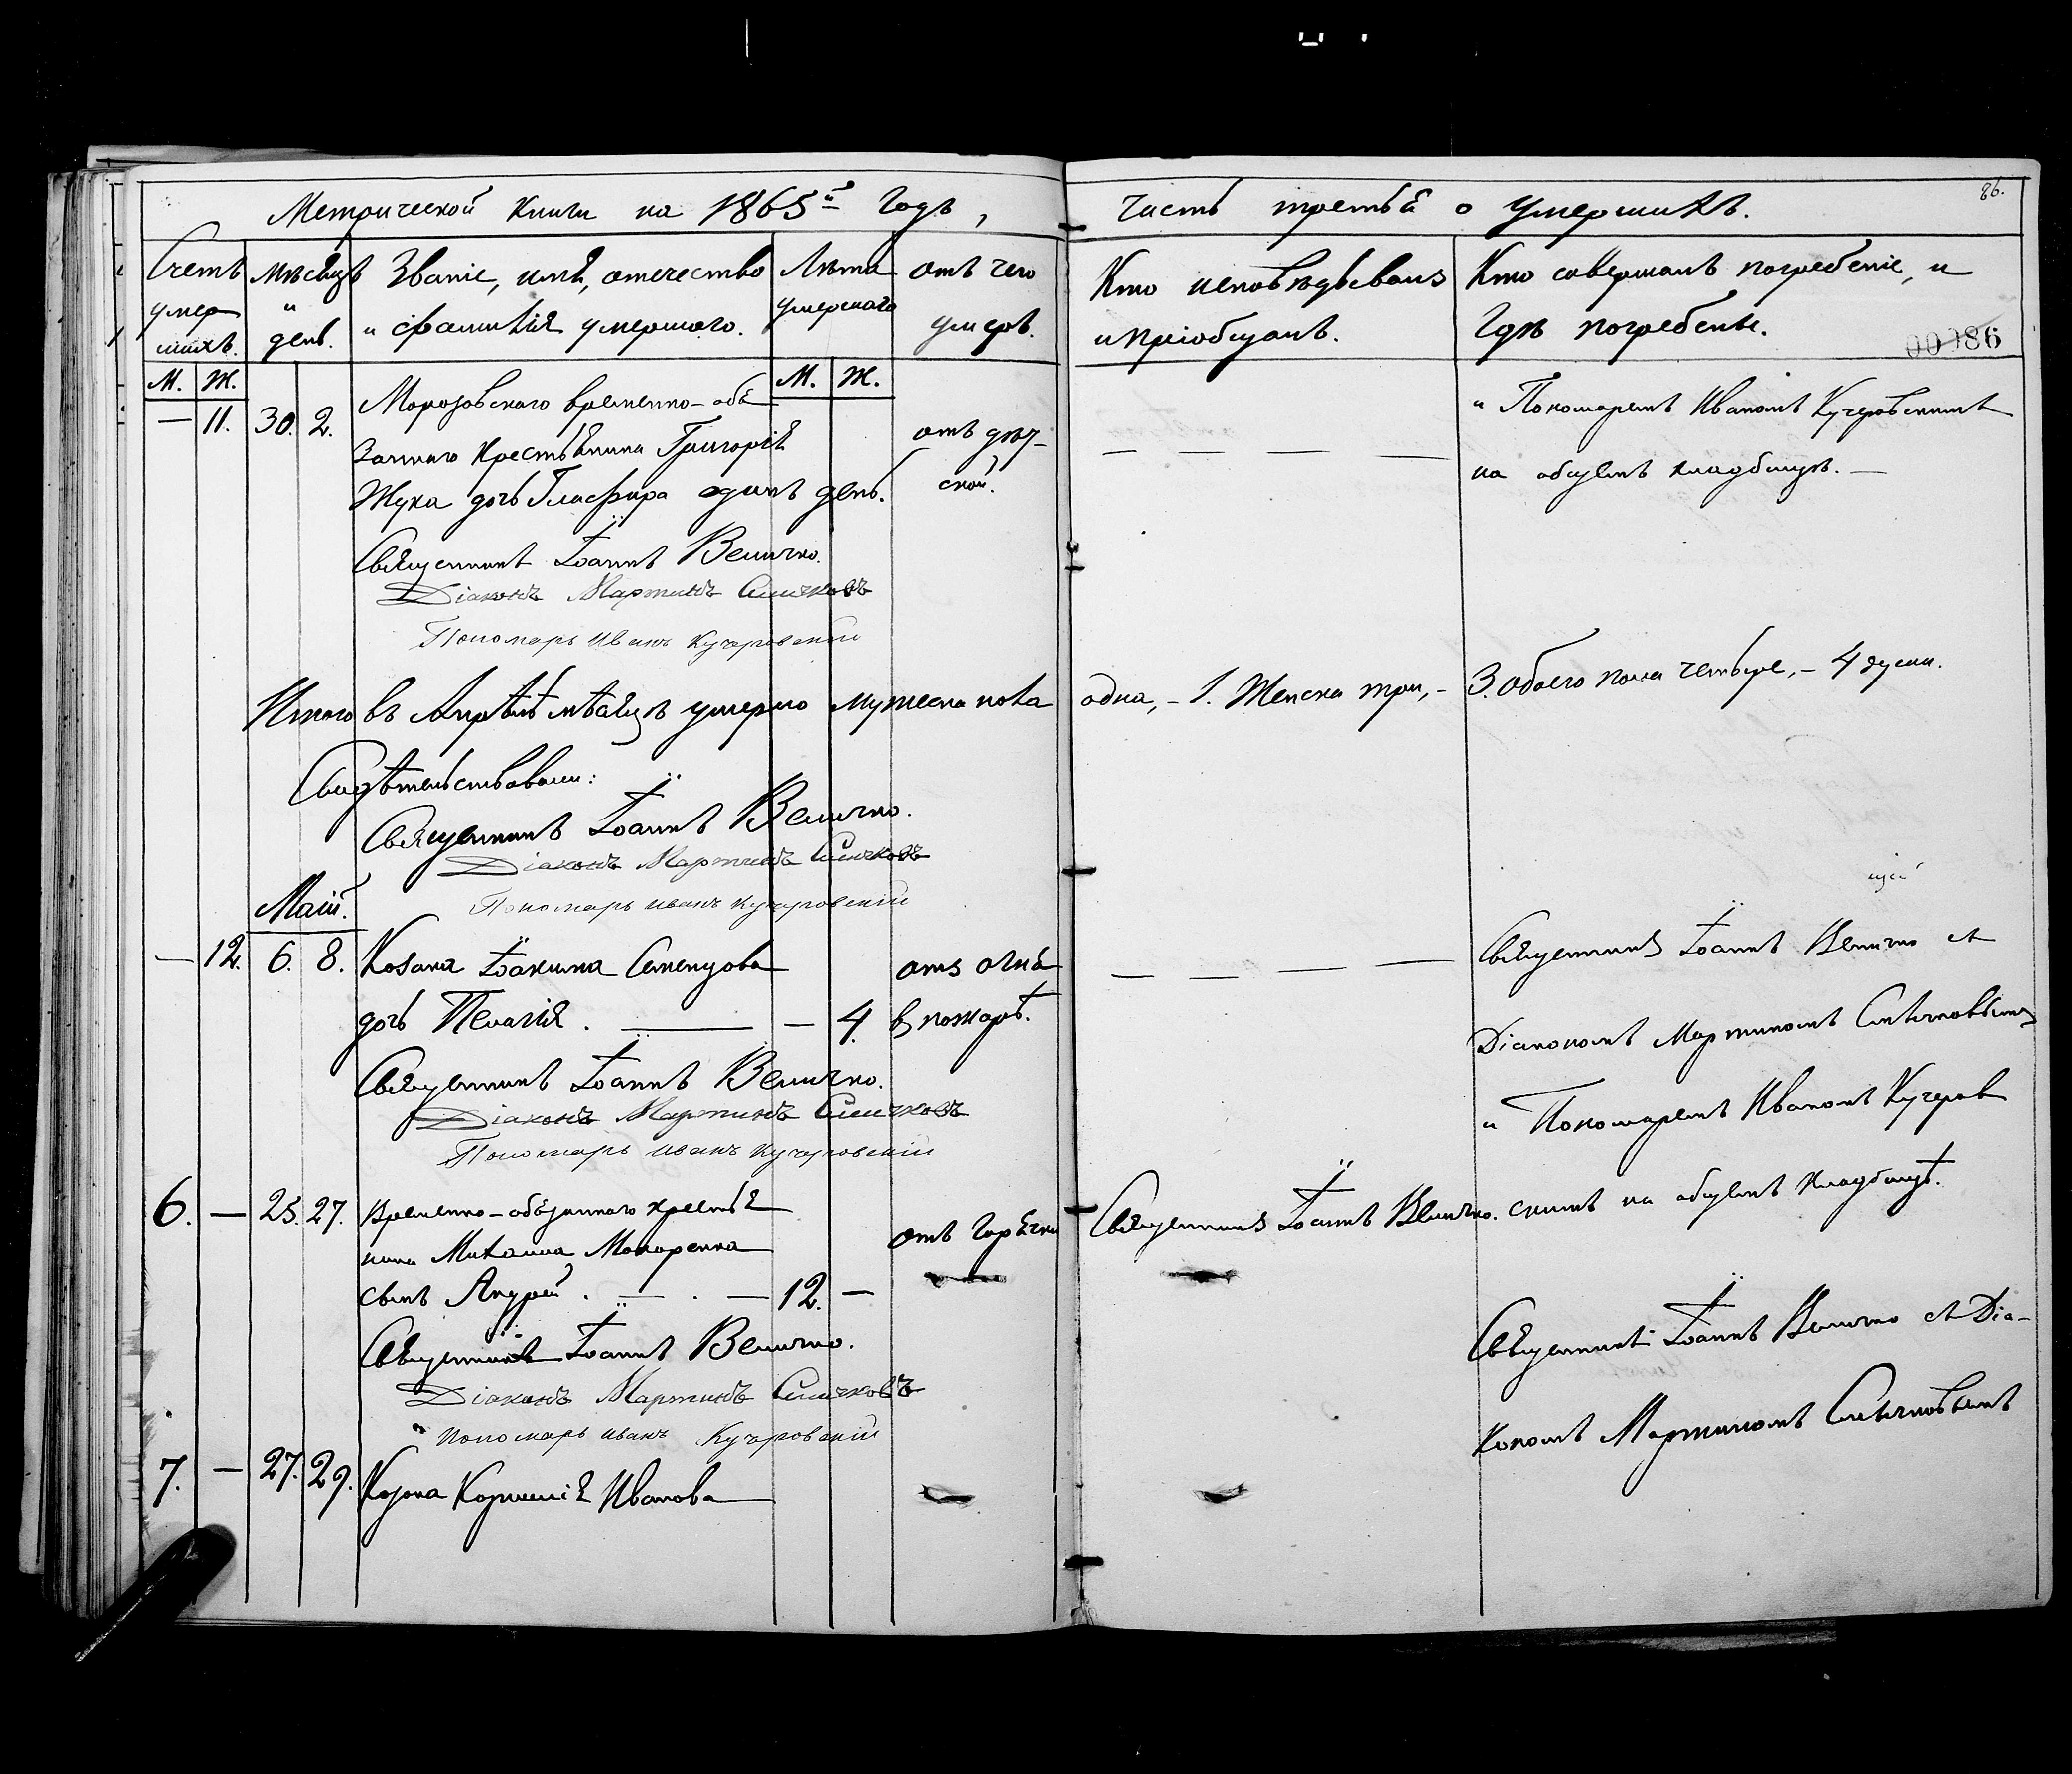 Метрической книги на 1865й годъ,
Счетъ умер шихъ.
Мѣсяцъ и день.
Званіе, имя, отечество
и фамилія умершаго.
Лѣта умершаго
отъ чего умеръ.
М. Ж.
М. Ж.
— 11. 30. 2. Морозовскаго временно-обя
заннаго крестьянина Григорія
Жука дочь Гласфира одинъ день.
отъ дѣт-
ской.
Священникъ Іоаннъ Величко.
Діаконъ Мартинъ
Пономарь Иванъ Кучеровскій
Итого въ Апрѣлѣ мѣсяцѣ умерло мужеска пола
Свидѣтельствовали:
Священникъ Іоаннъ Величко.
Діаконъ Мартинъ
Пономарь Иванъ Кучеровскій
Маій.
— 12. 6. 8. Козака Іоакима Семенцова
отъ огня
дочь Пелагія. — — 4. в пожарѣ.
Священникъ Іоаннъ Величко.
Діаконъ Мартинъ
Пономарь Иванъ Кучеровскій
6. — 25. 27. Временно-обязаннаго крестья
нина Михаила Макаренка
отъ горячки
сынъ Андрей. — . — 12. —
Священникъ Іоаннъ Величко.
Діаконъ Мартинъ
Пономарь Иванъ Кучеровскій
7. — 27. 29. Козака Корнилія Иванова
86.
Часть третья о умершихъ.
Кто исповѣдывалъ
и пріобщалъ.
Кто совершалъ погребеніе, и
гдѣ погребены.
00086
и Пономаремъ Иваномъ Кучеровскимъ
— — — —
на общемъ кладбищѣ. —
одна, - 1. Женска три, - 3. обоего пола четыре, - 4 души.
Священникъ Іоаннъ Величко съ
— — — —
Діакономъ Мартиномъ
и Пономаремъ Иваномъ Кучеров
Священникъ Іоаннъ Величко. скимъ на общемъ кладбищѣ.
Священникъ Іоаннъ Величко съ Діа-
кономъ Мартиномъ